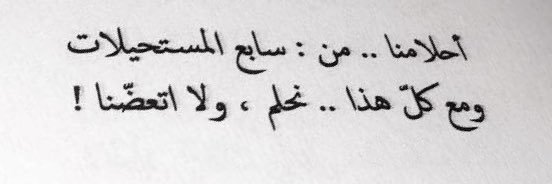 أحلامنا .. من : سابع المستحيلات
ومع كلّ هذا .. نحلم ، ولا اتعضّنا !